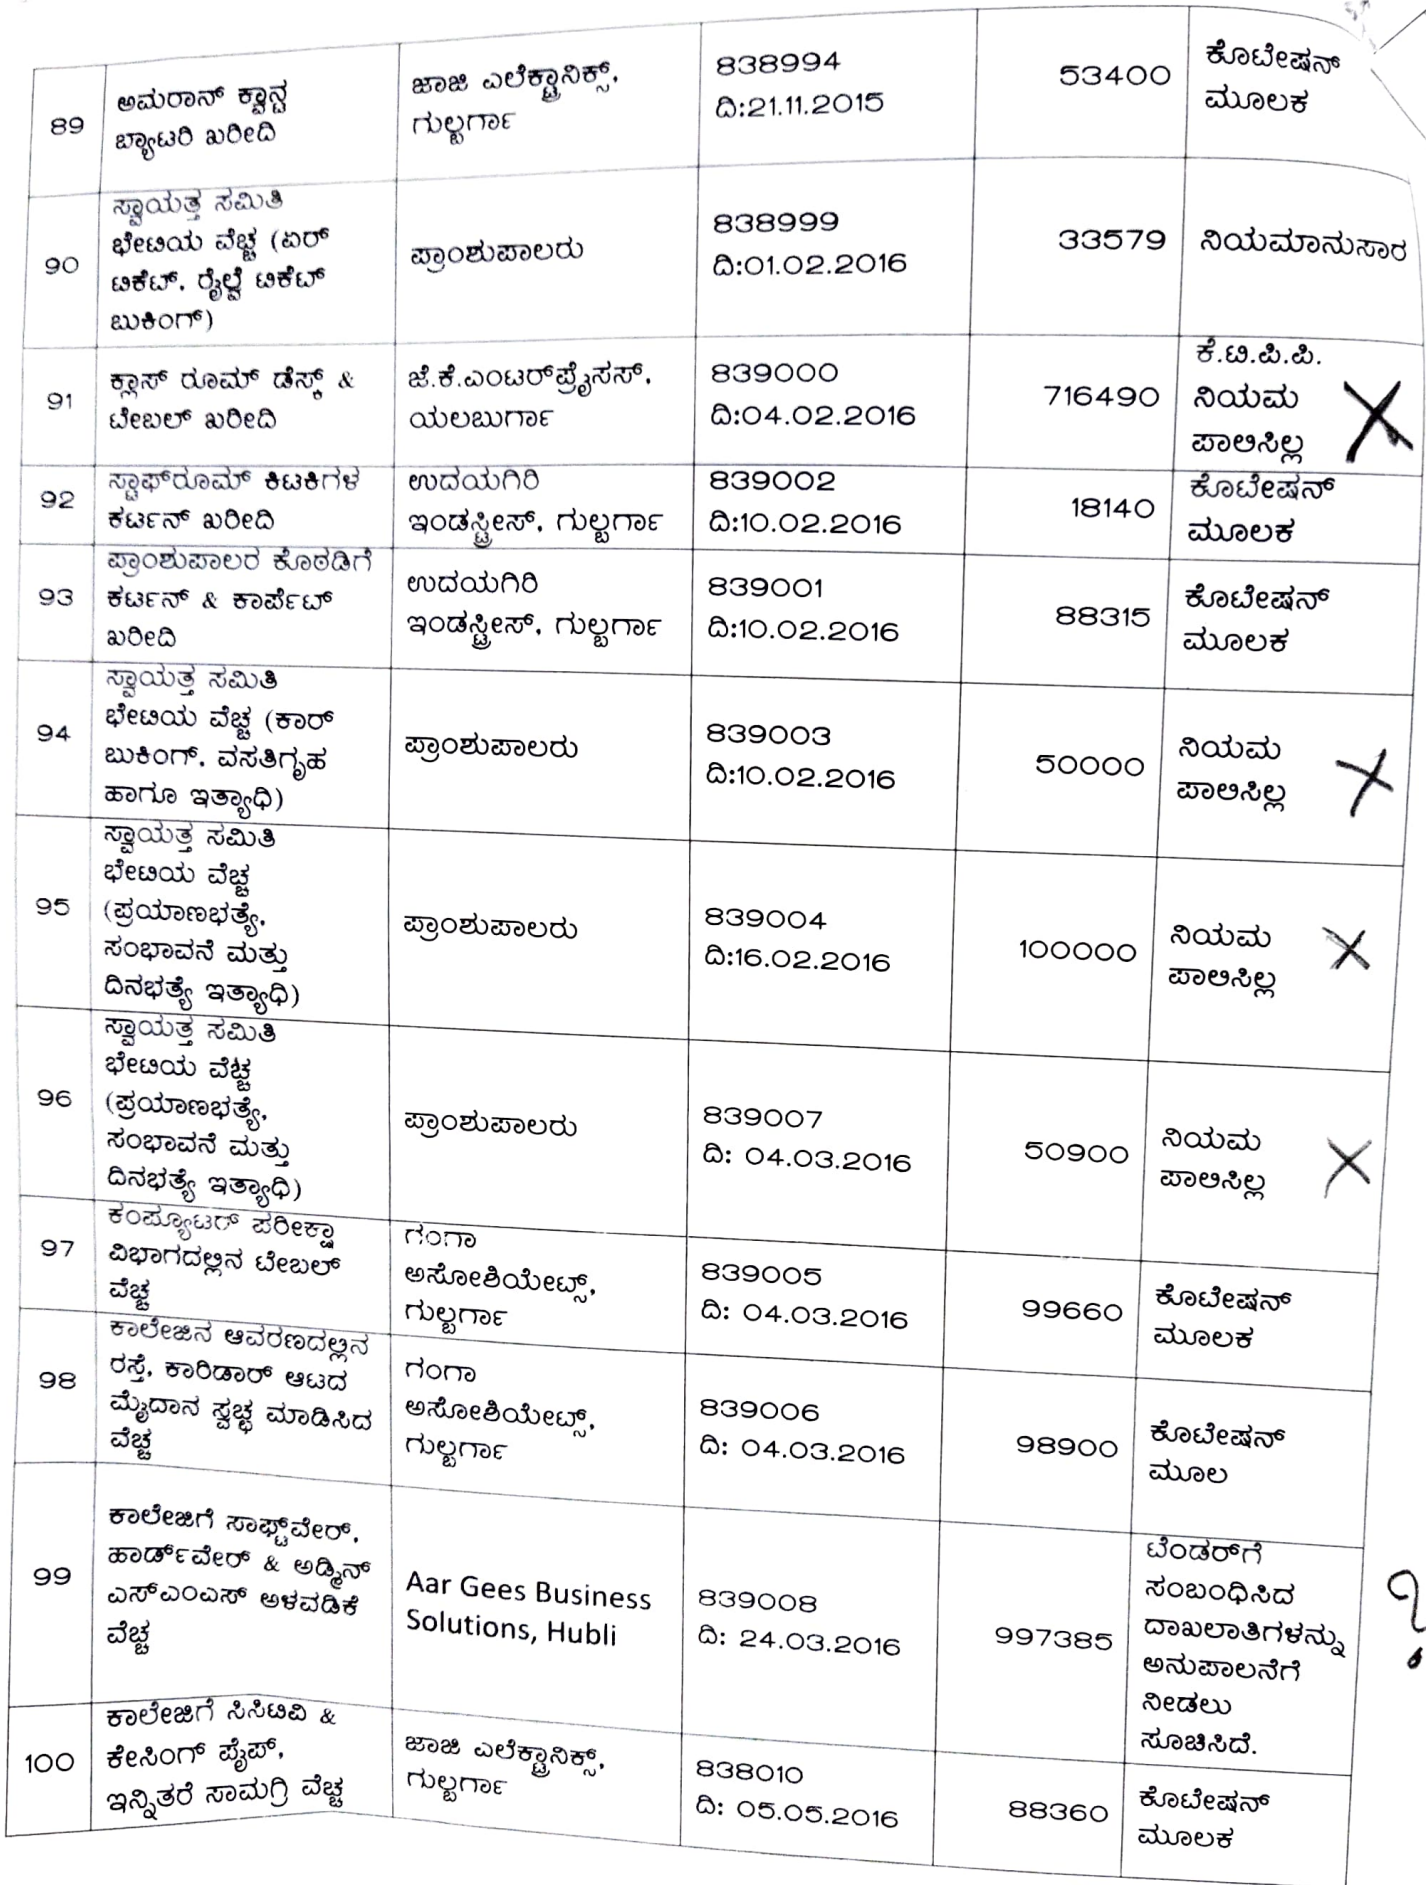 89
ಅಮರಾನ್ ಕ್ವಾನ್ಟ
ಬ್ಯಾಟರಿ ಖರೀದಿ
ಜಾಜಿ ಎಲೆಕ್ಟ್ರಾನಿಕ್ಸ್,
ಗುಲ್ಬರ್ಗಾ
838994
ದಿ:21.11.2015
53400
ಕೊಟೇಷನ್
ಮೂಲಕ
90
ಸ್ವಾಯತ್ತ ಸಮಿತಿ
ಭೇಟಿಯ ವೆಚ್ಚ (ಏರ್
ಟಿಕೆಟ್, ರೈಲ್ವೆ ಟಿಕೆಟ್
ಬುಕಿಂಗ್)
ಪ್ರಾಂಶುಪಾಲರು
838999
ದಿ:01.02.2016
33579
ನಿಯಮಾನುಸಾರ
91
ಕ್ಲಾಸ್ ರೂಮ್ ಡೆಸ್ಕ್ &
ಟೇಬಲ್ ಖರೀದಿ
ಜೆ.ಕೆ.ಎಂಟರ್‌ಪ್ರೈಸಸ್,
ಯಲಬುರ್ಗಾ
839000
ದಿ:04.02.2016
716490
ಕೆ.ಟಿ.ಪಿ.ಪಿ.
ನಿಯಮ
ಪಾಲಿಸಿಲ್ಲ
92
ಸ್ಟಾಫ್‌ರೂಮ್ ಕಿಟಕಿಗಳ
ಕರ್ಟನ್ ಖರೀದಿ
ಉದಯಗಿರಿ
ಇಂಡಸ್ಟ್ರೀಸ್, ಗುಲ್ಬರ್ಗಾ
839002
ದಿ:10.02.2016
18140
ಕೊಟೇಷನ್
ಮೂಲಕ
93
ಪ್ರಾಂಶುಪಾಲರ ಕೊಠಡಿಗೆ
ಕರ್ಟನ್ & ಕಾರ್ಪೆಟ್
ಖರೀದಿ
ಉದಯಗಿರಿ
ಇಂಡಸ್ಟ್ರೀಸ್, ಗುಲ್ಬರ್ಗಾ
839001
ದಿ:10.02.2016
88315
ಕೊಟೇಷನ್
ಮೂಲಕ
94
ಸ್ವಾಯತ್ತ ಸಮಿತಿ
ಭೇಟಿಯ ವೆಚ್ಚ (ಕಾರ್
ಬುಕಿಂಗ್, ವಸತಿಗೃಹ
ಹಾಗೂ ಇತ್ಯಾಧಿ)
ಪ್ರಾಂಶುಪಾಲರು
839003
ದಿ:10.02.2016
50000
ನಿಯಮ
ಪಾಲಿಸಿಲ್ಲ
95
ಸ್ವಾಯತ್ತ ಸಮಿತಿ
ಭೇಟಿಯ ವೆಚ್ಚ
(ಪ್ರಯಾಣಭತ್ಯೆ,
ಸಂಭಾವನೆ ಮತ್ತು
ದಿನಭತ್ಯೆ ಇತ್ಯಾಧಿ)
ಪ್ರಾಂಶುಪಾಲರು
839004
ದಿ:16.02.2016
100000
ನಿಯಮ
ಪಾಲಿಸಿಲ್ಲ
96
ಸ್ವಾಯತ್ತ ಸಮಿತಿ
ಭೇಟಿಯ ವೆಚ್ಚ
(ಪ್ರಯಾಣಭತ್ಯೆ,
ಸಂಭಾವನೆ ಮತ್ತು
ದಿನಭತ್ಯೆ ಇತ್ಯಾಧಿ)
ಪ್ರಾಂಶುಪಾಲರು
839007
ದಿ: 04.03.2016
50900
ನಿಯಮ
ಪಾಲಿಸಿಲ್ಲ
97
ಕಂಪ್ಯೂಟರ್ ಪರೀಕ್ಷಾ
ವಿಭಾಗದಲ್ಲಿನ ಟೇಬಲ್
ವೆಚ್ಚ
ಗಂಗಾ
ಅಸೋಶಿಯೇಟ್ಸ್,
ಗುಲ್ಬರ್ಗಾ
839005
ದಿ: 04.03.2016
99660
ಕೊಟೇಷನ್
ಮೂಲಕ
98
ಕಾಲೇಜಿನ ಆವರಣದಲ್ಲಿನ
ರಸ್ತೆ, ಕಾರಿಡಾರ್ ಆಟದ
ಮೈದಾನ ಸ್ವಚ್ಛ ಮಾಡಿಸಿದ
ವೆಚ್ಚ
ಗಂಗಾ
ಅಸೋಶಿಯೇಟ್ಸ್,
ಗುಲ್ಬರ್ಗಾ
839006
ದಿ: 04.03.2016
98900
ಕೊಟೇಷನ್
ಮೂಲ
99
ಕಾಲೇಜಿಗೆ ಸಾಫ್ಟ್‌ವೇರ್,
ಹಾರ್ಡ್‌ವೇರ್ & ಅಡ್ಮಿನ್
ಎಸ್‌ಎಂಎಸ್ ಅಳವಡಿಕೆ
ವೆಚ್ಚ
Aar Gees Business
Solutions, Hubli
839008
ದಿ: 24.03.2016
997385
ಟೆಂಡರ್‌ಗೆ
ಸಂಬಂಧಿಸಿದ
ದಾಖಲಾತಿಗಳನ್ನು
ಅನುಪಾಲನೆಗೆ
ನೀಡಲು
ಸೂಚಿಸಿದೆ.
?
100
ಕಾಲೇಜಿಗೆ ಸಿಸಿಟಿವಿ &
ಕೇಸಿಂಗ್ ಪೈಪ್,
ಇನ್ನಿತರೆ ಸಾಮಗ್ರಿ ವೆಚ್ಚ
ಜಾಜಿ ಎಲೆಕ್ಟ್ರಾನಿಕ್ಸ್,
ಗುಲ್ಬರ್ಗಾ
838010
ದಿ: 05.05.2016
88360
ಕೊಟೇಷನ್
ಮೂಲಕ